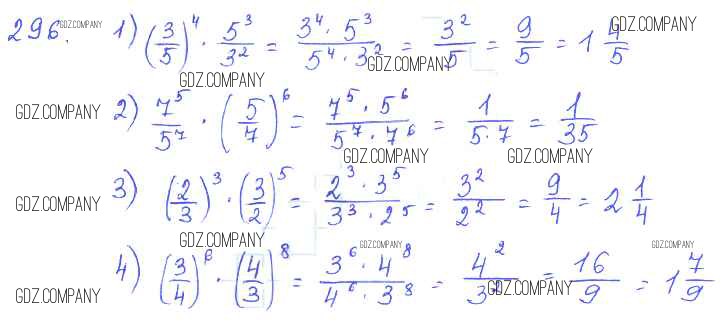 296. GDZ.COMPANY 1) (3/5)^4 · 5^3/3^2 = 3^4 · 5^3/5^4 · 3^2 = 3^2/5 = 9/5 = 1 4/5 GDZ.COMPANY
GDZ.COMPANY GDZ.COMPANY
GDZ.COMPANY 2) 7^5/5^7 · (5/7)^6 = 7^5 · 5^6/5^7 · 7^6 = 1/5·7 = 1/35
GDZ.COMPANY GDZ.COMPANY
GDZ.COMPANY 3) (2/3)^3 · (3/2)^5 = 2^3 · 3^5/3^3 · 2^5 = 3^2/2^2 = 9/4 = 2 1/4
GDZ.COMPANY GDZ.COMPANY GDZ.COMPANY
GDZ.COMPANY 4) (3/4)^6 · (4/3)^8 = 3^6 · 4^8/4^6 · 3^8 = 4^2/3^2 = 16/9 = 1 7/9
GDZ.COMPANY